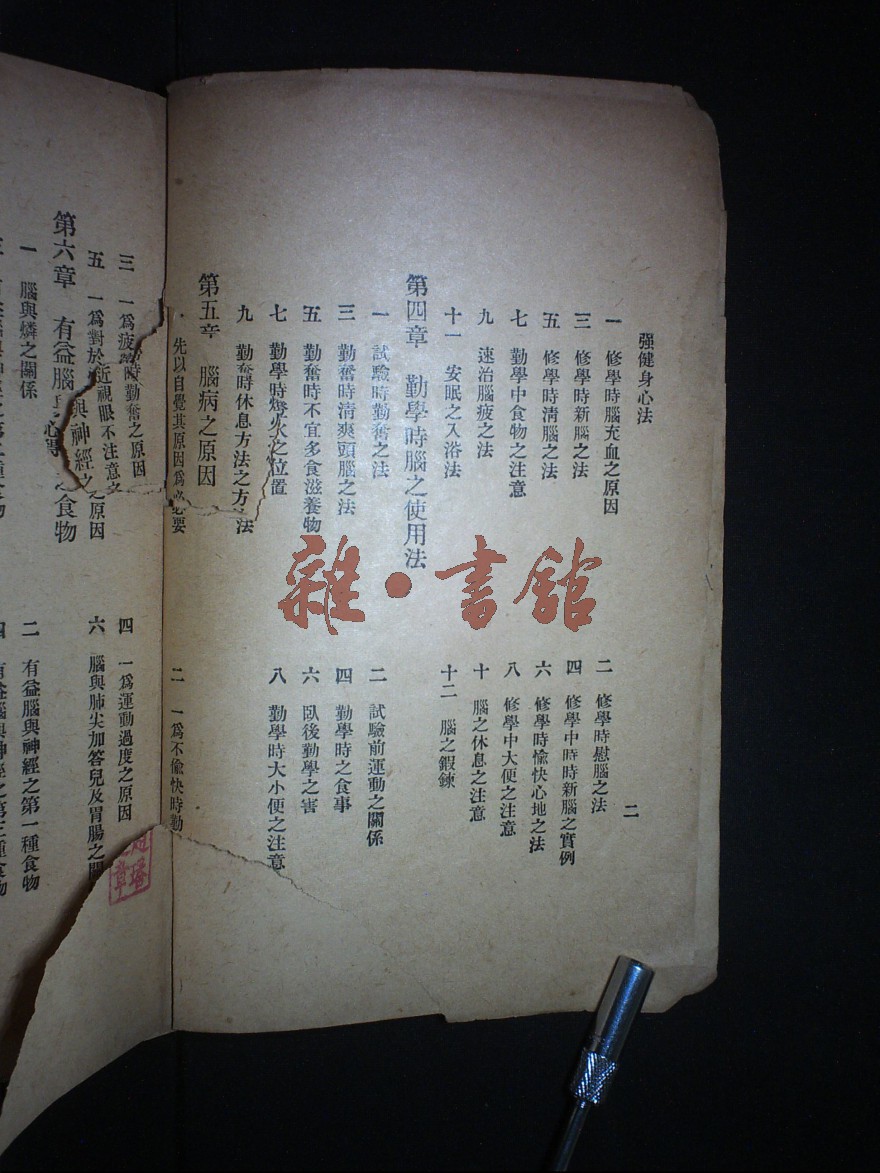 强健身心法
二
一 修學時腦充血之原因
二 修學時慰腦之法
三 修學時新腦之法
四 修學中時時新腦之實例
五 修學時清腦之法
六 修學時愉快心地之法
七 勤學中食物之注意
八 修學中大便之注意
九 速治腦疲之法
十 腦之休息之注意
十一 安眠之入浴法
十二 腦之鍜鍊
第四章 勤學時腦之使用法
一 試驗時勤奮之法
二 試驗前運動之關係
三 勤奮時清爽頭腦之法
四 勤學時之食事
五 勤奮時不宜多食滋養物
六 臥後勤學之害
七 勤學時燈火之位置
八 勤學時大小便之注意
九 勤奮時休息方法之方法
第五章 腦病之原因
先以自覺其原因爲必要
二 一爲不愉快時勤
三 一爲疲勞時勤奮之原因
四 一爲運動過度之原因
五 一爲對於近視眼不注意之原因
六 腦與肺尖加答兒及胃腸之關
第六章 有益腦與神經之食物
一 腦與燐之關係
二 有益腦與神經之第一種食物
雜·書館